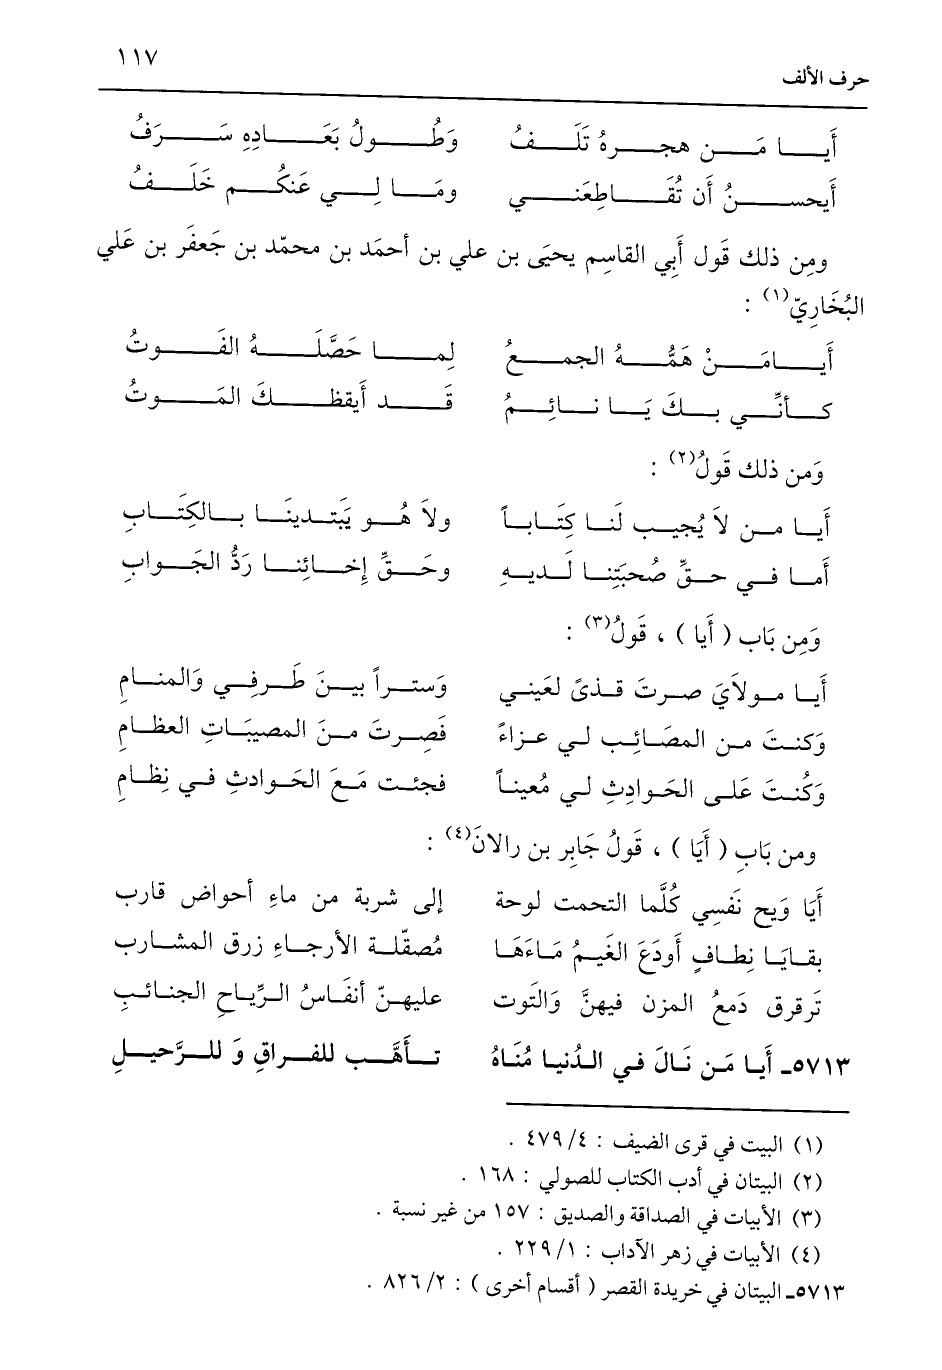 ١١٧
حرف الألف
أَيا مَن هجرهُ تَلَفُ وَطُولُ بَعَادِهِ سَرَفُ
أيحسنُ أن تُقَاطِعَني ومَا لِي عَنكُم خَلَفُ
ومِن ذلك قَول أَبي القاسِم يحيَى بن علي بن أحمَد بن محمّد بن جَعفَر بن عَلي
البُخَارِيّ(١) :
أَيامَنْ هَمُّهُ الجمعُ لِما حَصَّلَهُ الفَوتُ
كأنِّي بكَ يَا نائِمُ قَد أَيقظكَ المَوتُ
وَمن ذلك قَولُ(٢) :
أَيا من لاَ يُجيب لَنا كِتَاباً ولاَ هُو يَبتَدينَا بالكِتَابِ
أما في حقِّ صُحبَتِنا لَديهِ وحَقِّ إخائِنا رَدُّ الجَوابِ
وَمِن بَاب ( أَيا ) ، قَولُ(٣) :
أَيا مولاَيَ صرتَ قذىً لعَيني وَستراً بينَ طَرفِي وَالمنامِ
وَكنتَ من المصَائب لي عزاءً فَصِرتَ منَ المصيبَاتِ العظَامِ
وَكُنتَ عَلى الحَوادِثِ لي مُعيناً فجئت مَعَ الحَوادثِ في نِظَامِ
ومن بَابِ ( أَيَا ) ، قَولُ جَابِر بن رالانَ(٤) :
أَيَا وَيح نَفسِي كُلَّما التحمت لوحة إلى شربة من ماءِ أحواض قارب
بقايَا نِطافٍ أَودَعَ الغَيمُ مَاءَهَا مُصقّلة الأرجاءِ زرق المشارب
تَرقرق دَمعُ المزن فيهنَّ وَالتوت عليهنّ أنفَاسُ الرِّياحِ الجنائبِ
٥٧١٣ـ أَيا مَن نَالَ في الدُنيا مُنَاهُ تأَهَّب للفراقِ وَ للرَّحيلِ
(١) البيت في قرى الضيف : ٤/ ٤٧٩ .
(٢) البيتان في أدب الكتاب للصولي : ١٦٨ .
(٣) الأبيات في الصداقة والصديق : ١٥٧ من غير نسبة .
(٤) الأبيات في زهر الآداب : ١/ ٢٢٩ .
٥٧١٣ـ البيتان في خريدة القصر ( أقسام أخرى ) : ٢/ ٨٢٦ .